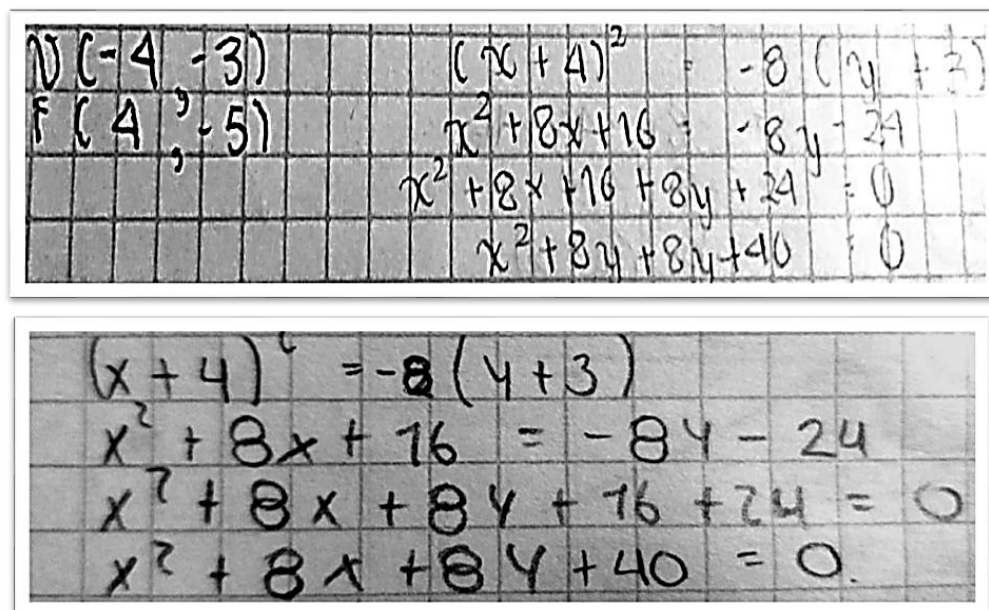 V(-4,-3) (x+4)² = -8(y+3)
F(4,-5) x²+8x+16 = -8y-24
x²+8x+16+8y+24 = 0
x²+8y+8y+40 = 0
(x+4)² = -8(y+3)
x²+8x+16 = -8y-24
x²+8x+8y+16+24 = 0
x²+8x+8y+40 = 0.